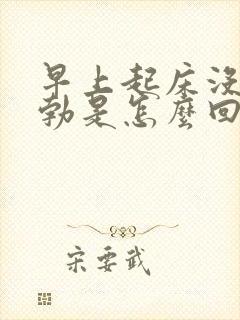 早上起床没
勃是怎麼回
宋要武